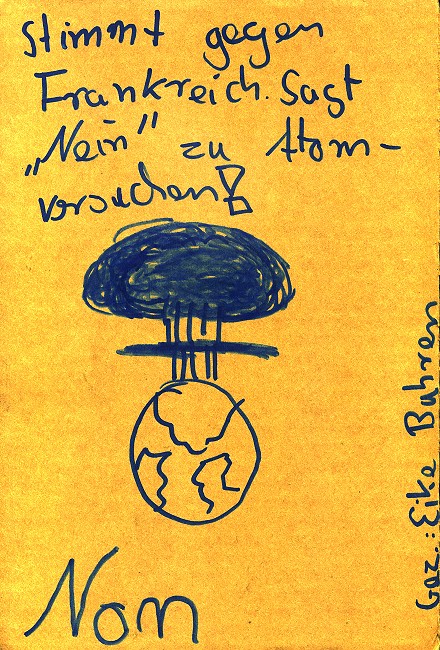 Stimmt gegen
Frankreich. Sagt
„Nein" zu Atom-
versuchen!
Non
Gez.: Eike Bahren